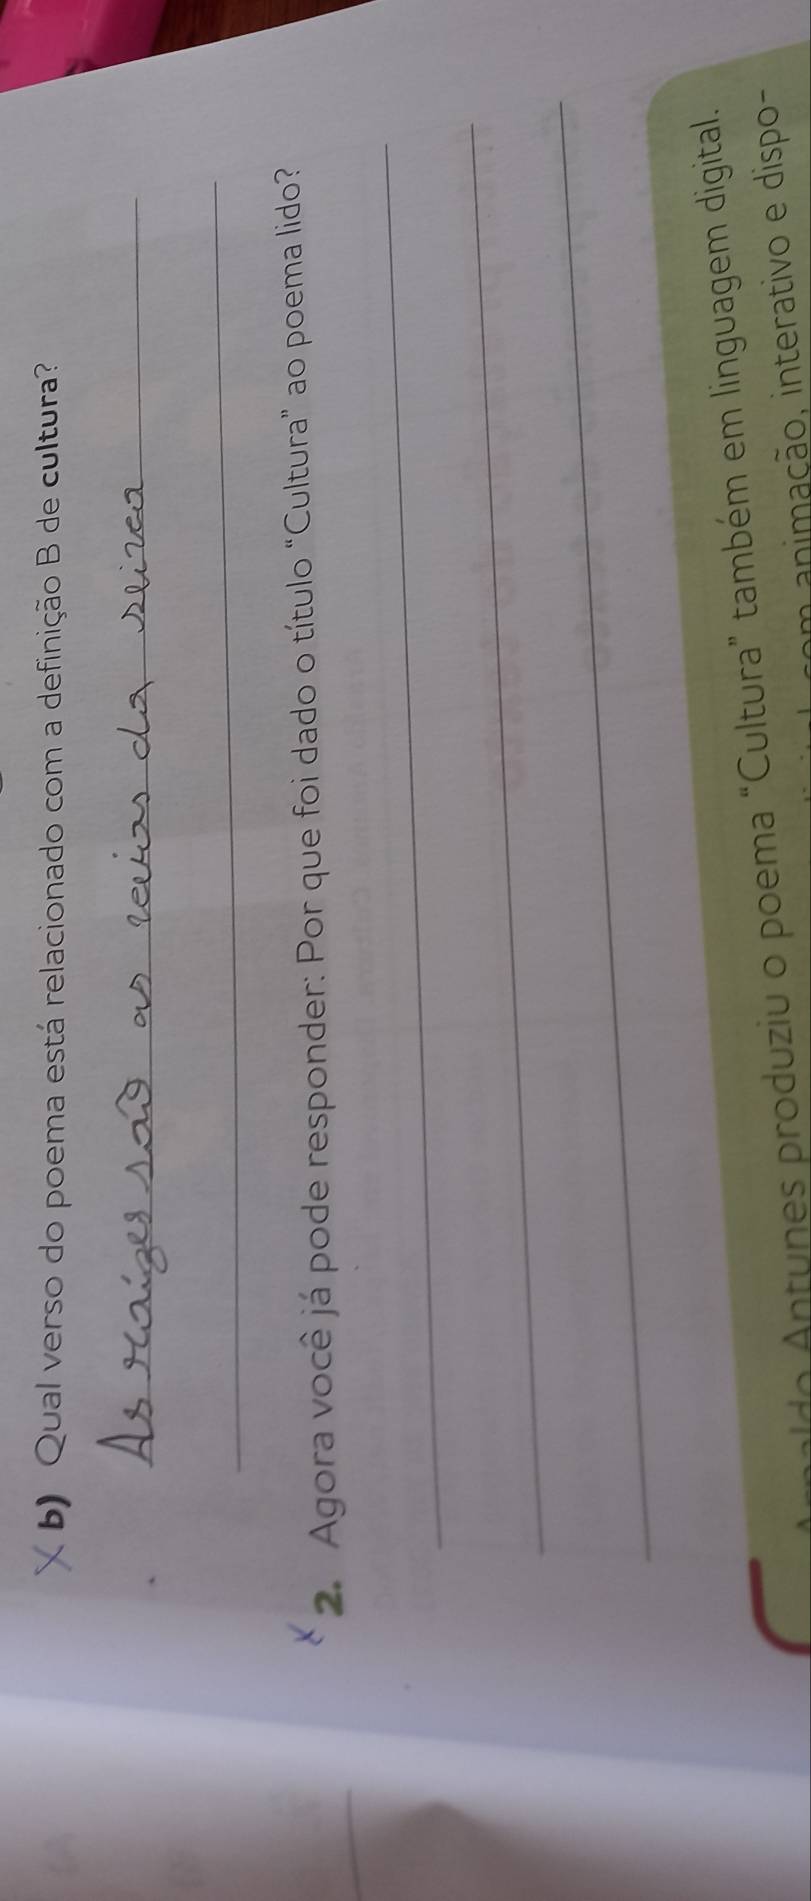 X b) Qual verso do poema está relacionado com a definição B de cultura?
As raízes são as veias da seiva
X 2. Agora você já pode responder: Por que foi dado o título “Cultura” ao poema lido?
Arnaldo Antunes produziu o poema “Cultura” também em linguagem digital.
com animação, interativo e dispo-